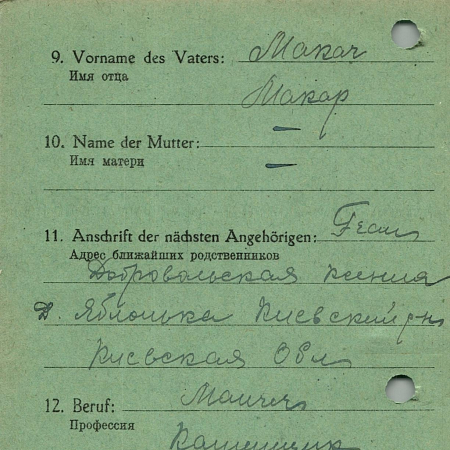 9. Vorname des Vaters: Макаr
Имя отца
Макар
10. Name der Mutter: —
Имя матери —
11. Anschrift der nächsten Angehörigen: Frau
Адрес ближайших родственников
Добровольская Ксения
д. Яблонька Киевский р-н
Киевская Обл
12. Beruf: Maurer
Профессия